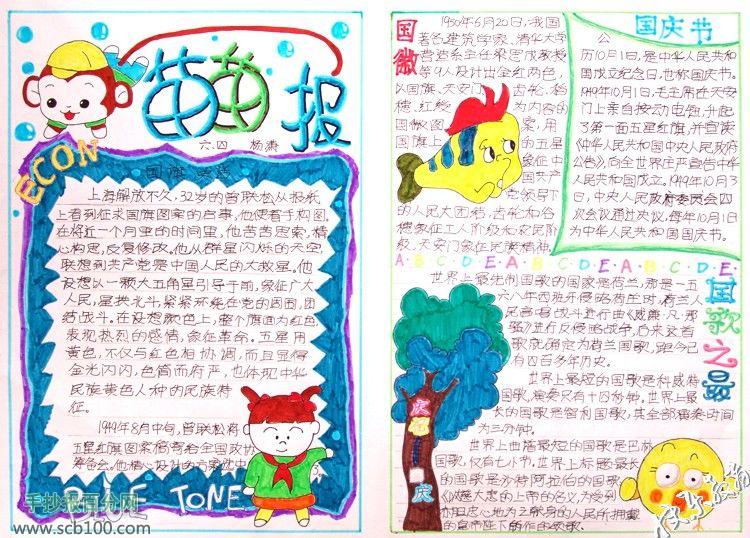 苗苗报
六.四 杨燕
ECON
上海解放不久,32岁的曾联松从报纸
上看到征求国旗图案的启事,他便着手构图。
在将近一个月里的时间里,他苦苦思索,精
心构思,反复修改。他从群星闪烁的天空,
联想到共产党是中国人民的大救星。他
设想以一颗大五角星引导于前,象征广大
人民,星拱北斗,紧紧环绕在党的周围,团
结战斗。在设想颜色上,整个旗面为红色,
表现热烈的感情,象征革命。五星用
黄色,不仅与红色相协调,而且显得
金光闪闪,色简而庄严,也体现中华
民族黄色人种的民族特
征。
1949年8月中旬,曾联松将
五星红旗图案稿寄给全国政协
筹备会。他精心设计的方案选中
TONE
手抄报百分网
www.scb100.com
国徽
1950年6月20日,我国
著名建筑学家、清华大学
营造系主任梁思成教授
等9人设计出金红两色,
以国旗、天安门、齿轮、稻
穗、红绶为内容的
国徽图案,用
国旗上的五星
象征中国
共产党领导下
的人民大团结,齿轮和谷
穗象征工人阶级和农民阶
级,天安门象征民族精神。
国庆节
公
历10月1日,是中华人民共和
国成立纪念日,也称国庆节。
1949年10月1日,毛主席在天安
门上亲自按动电钮,升起
了第一面五星红旗,并宣读
《中华人民共和国中央人民政府
公告》,向全世界庄严宣告中华
人民共和国成立。1949年10月3
日,中央人民政府委员会四
次会议通过决议,每年10月1日
为中华人民共和国国庆节。
A·B·C·D·E·A·B·C·D·E·A·B·C·D·E·
国歌之最
世界上最先制国歌的国家是荷兰,那是一五
六八年西班牙侵略荷兰时,荷兰人
民唱着战斗进行曲《威廉·凡·那
骚》进行反侵略战争,后来这首
歌就确定为荷兰国歌,距今已
有四百多年历史。
世界上最短的国歌是科威特
国歌,演奏只有十四秒钟。世界上最
长的国歌是智利国歌,其全部演奏时间
为三分钟。
世界上曲谱最短的国歌是巴林
国歌,仅有七小节,世界上标题最长
的国歌是沙特阿拉伯的国歌